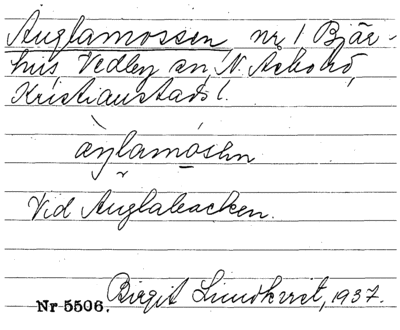 Auglamossen, nr 1 Bjär-
hus Vedby sn, N. Åsbo hd,
Kristianstads l.
Vid Auglabacken.
Nr 5506. Birgit Lundkvist, 1937.